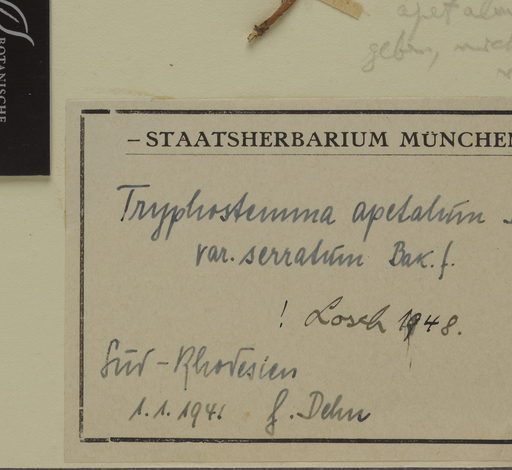 BOTANISCHE
apetalum
gebn,
– STAATSHERBARIUM MÜNCHEN
Tryphostemma apetalum
var. serratum Bak. f.
! Losch 1948.
Süd-Rhodesien
1.1.1941 G. Dehn